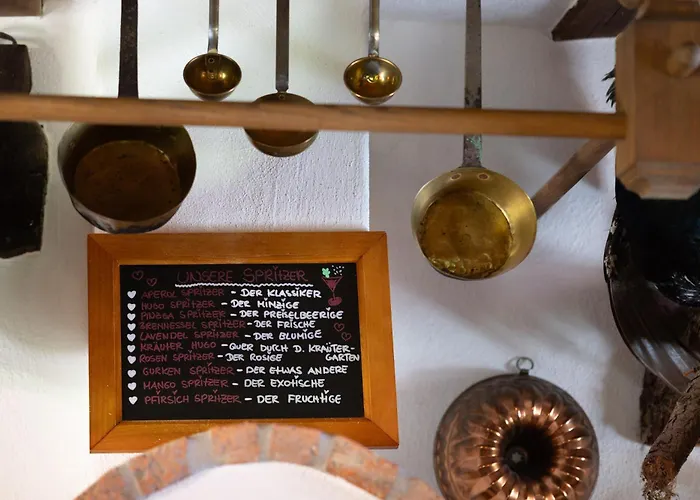 UNSERE SPRITZER
APEROL SPRITZER - DER KLASSIKER
HUGO SPRITZER - DER MINZIGE
PINZGA SPRITZER - DER PREIßELBEERIGE
BRENNESSEL SPRITZER - DER FRISCHE
LAVENDEL SPRITZER - DER BLUMIGE
KRÄUTER HUGO - QUER DURCH D. KRÄUTER-
GARTEN
ROSEN SPRITZER - DER ROSIGE
GURKEN SPRITZER - DER ETWAS ANDERE
MANGO SPRITZER - DER EXOTISCHE
PFIRSICH SPRITZER - DER FRUCHTIGE